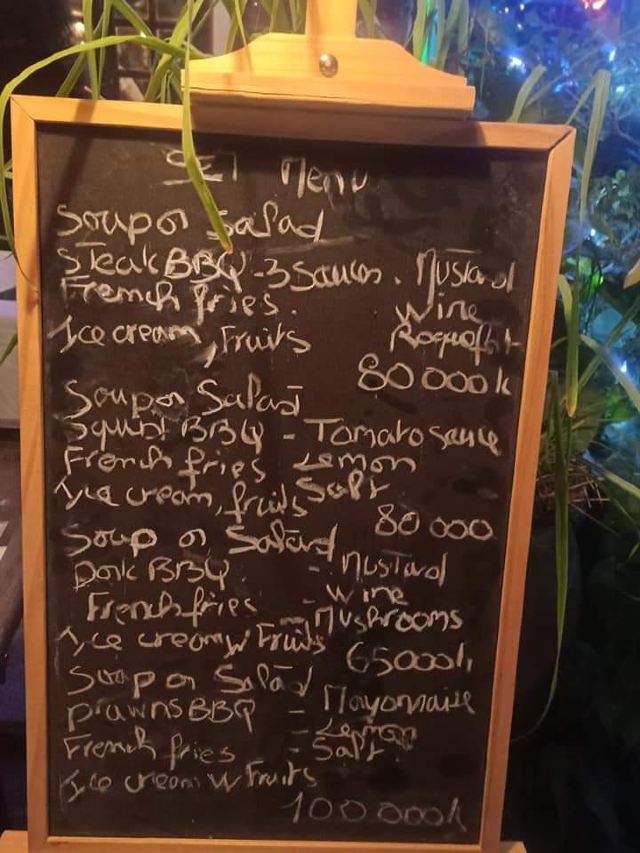 SET Menu
Soup or Salad
Steak BBQ - 3 Sauces. Mustard
French fries. Wine
Ice cream, Fruits Roquefort
80 000 k
Soup or Salad
Squid BBQ - Tomato sauce
French fries Lemon
Ice cream, fruits Salt
80 000
Soup or Salad
Pork BBQ. - Mustard
- Wine
French fries - Mushrooms
Ice cream w Fruits
65000 k
Soup or Salad
Prawns BBQ - Mayonnaise
- Lemon
French fries - Salt
Ice cream w Fruits
100 000 k